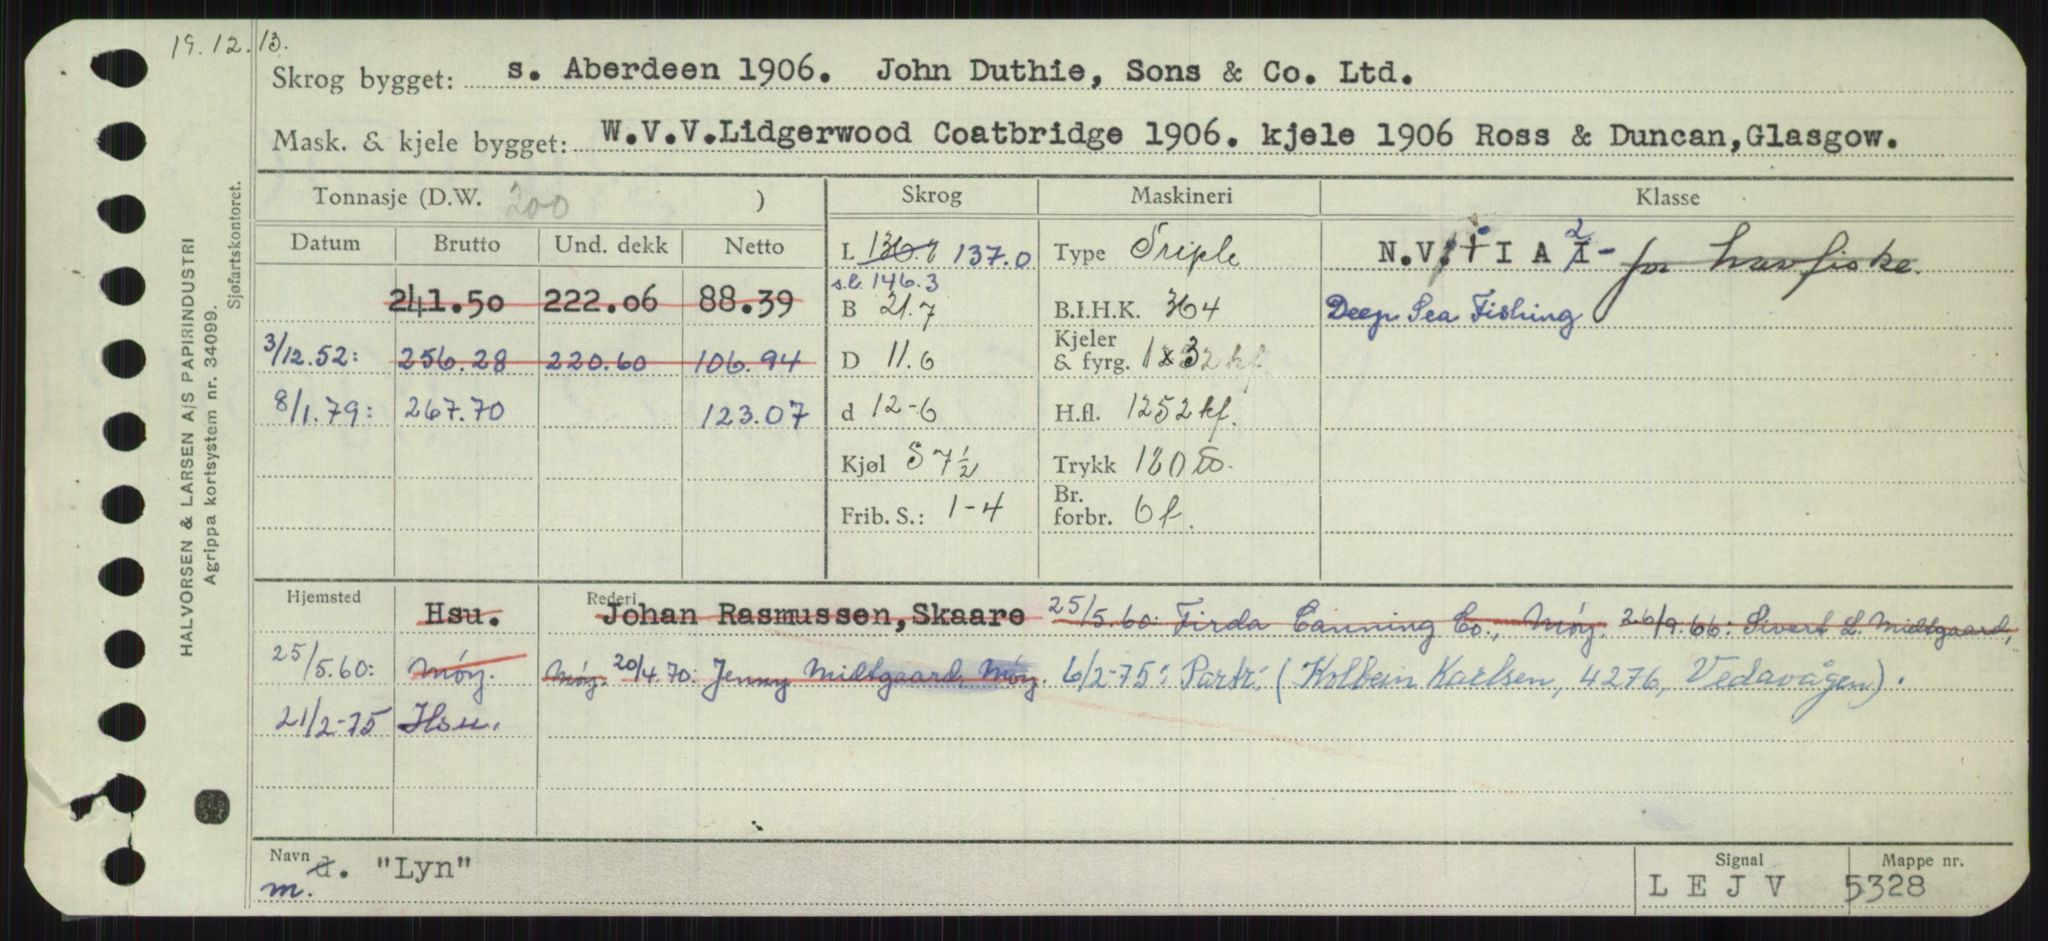 19.12.13.
Skrog bygget: s. Aberdeen 1906. John Duthie, Sons & Co. Ltd.
Mask. & kjele bygget: W.V.V.Lidgerwood Coatbridge 1906. kjele 1906 Ross & Duncan, Glasgow.
HALVORSEN & LARSEN A/S PAPIRINDUSTRI
Agrippa kortsystem nr. 34099.
Sjøfartskontoret.
Tonnasje (D.W. 200 ) Skrog Maskineri Klasse
Datum Brutto Und. dekk Netto
L 136.7 137.0 Type Triple N.V. I A 2 - for havfiske.
s.l. 146.3
241.50 222.06 88.39 B 21.7 B.I.H.K. 364 Deep Sea Fishing
3/12.52: 256.28 220.60 106.94 D 11.6 Kjeler & fyrg. 1 x 3
8/1.79: 267.70 123.07 d 12-6 H.fl. 1252 kf.
Kjøl S 7½ Trykk 180
Frib. S.: 1-4 Br. forbr. 6 f.
Hjemsted Hsu. Rederi Johan Rasmussen, Skaare 25/5.60: Firda Canning Co., Møy. 26/9.66: Sivert L. Midtgaard,
25/5.60: Møy. Møy. 20/4.70: Jenny Midtgaard, Møy. 6/2-75: Partr. (Kolbein Karlsen, 4276, Vedavågen).
21/2-75 Hsu.
Navn d. "Lyn" Signal Mappe nr.
m. L E J V 5328